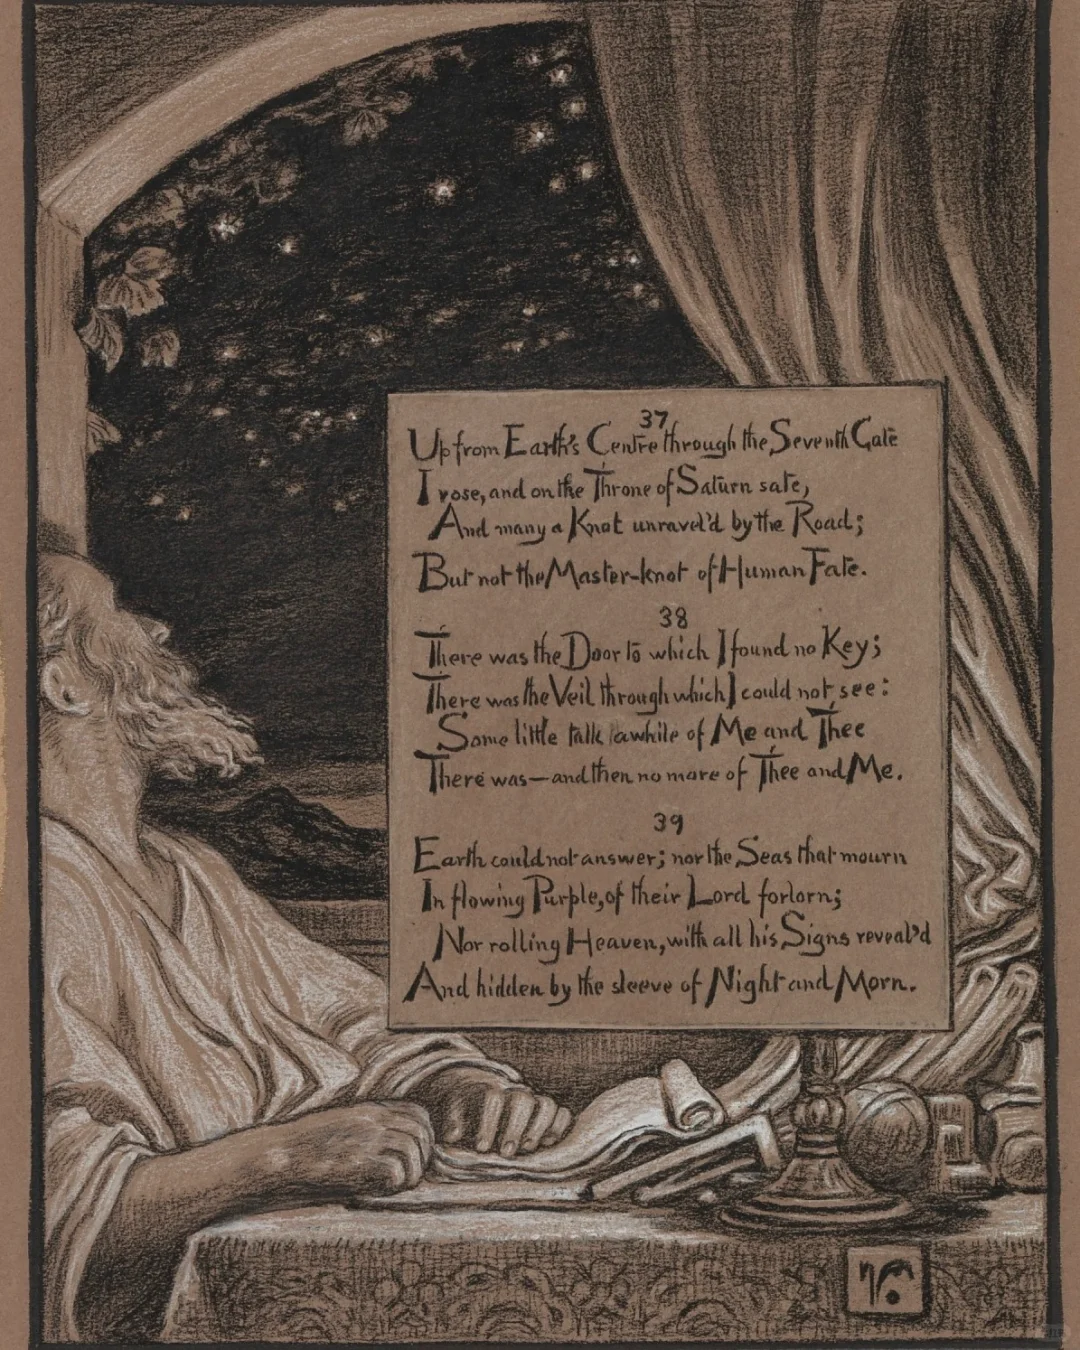 37
Up from Earth's Centre through the Seventh Gate
I rose, and on the Throne of Saturn sate,
And many a Knot unravel'd by the Road;
But not the Master-knot of Human Fate.
38
There was the Door to which I found no Key;
There was the Veil through which I could not see:
Some little talk awhile of Me and Thee
There was—and then no more of Thee and Me.
39
Earth could not answer; nor the Seas that mourn
In flowing Purple, of their Lord forlorn;
Nor rolling Heaven, with all his Signs reveal'd
And hidden by the sleeve of Night and Morn.